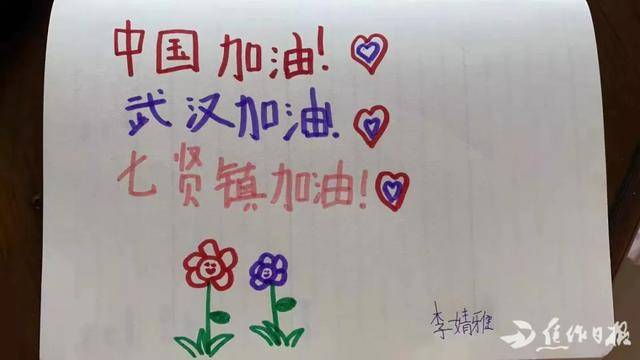 中国加油!
武汉加油!
七贤镇加油!
李婧雅
焦作日报